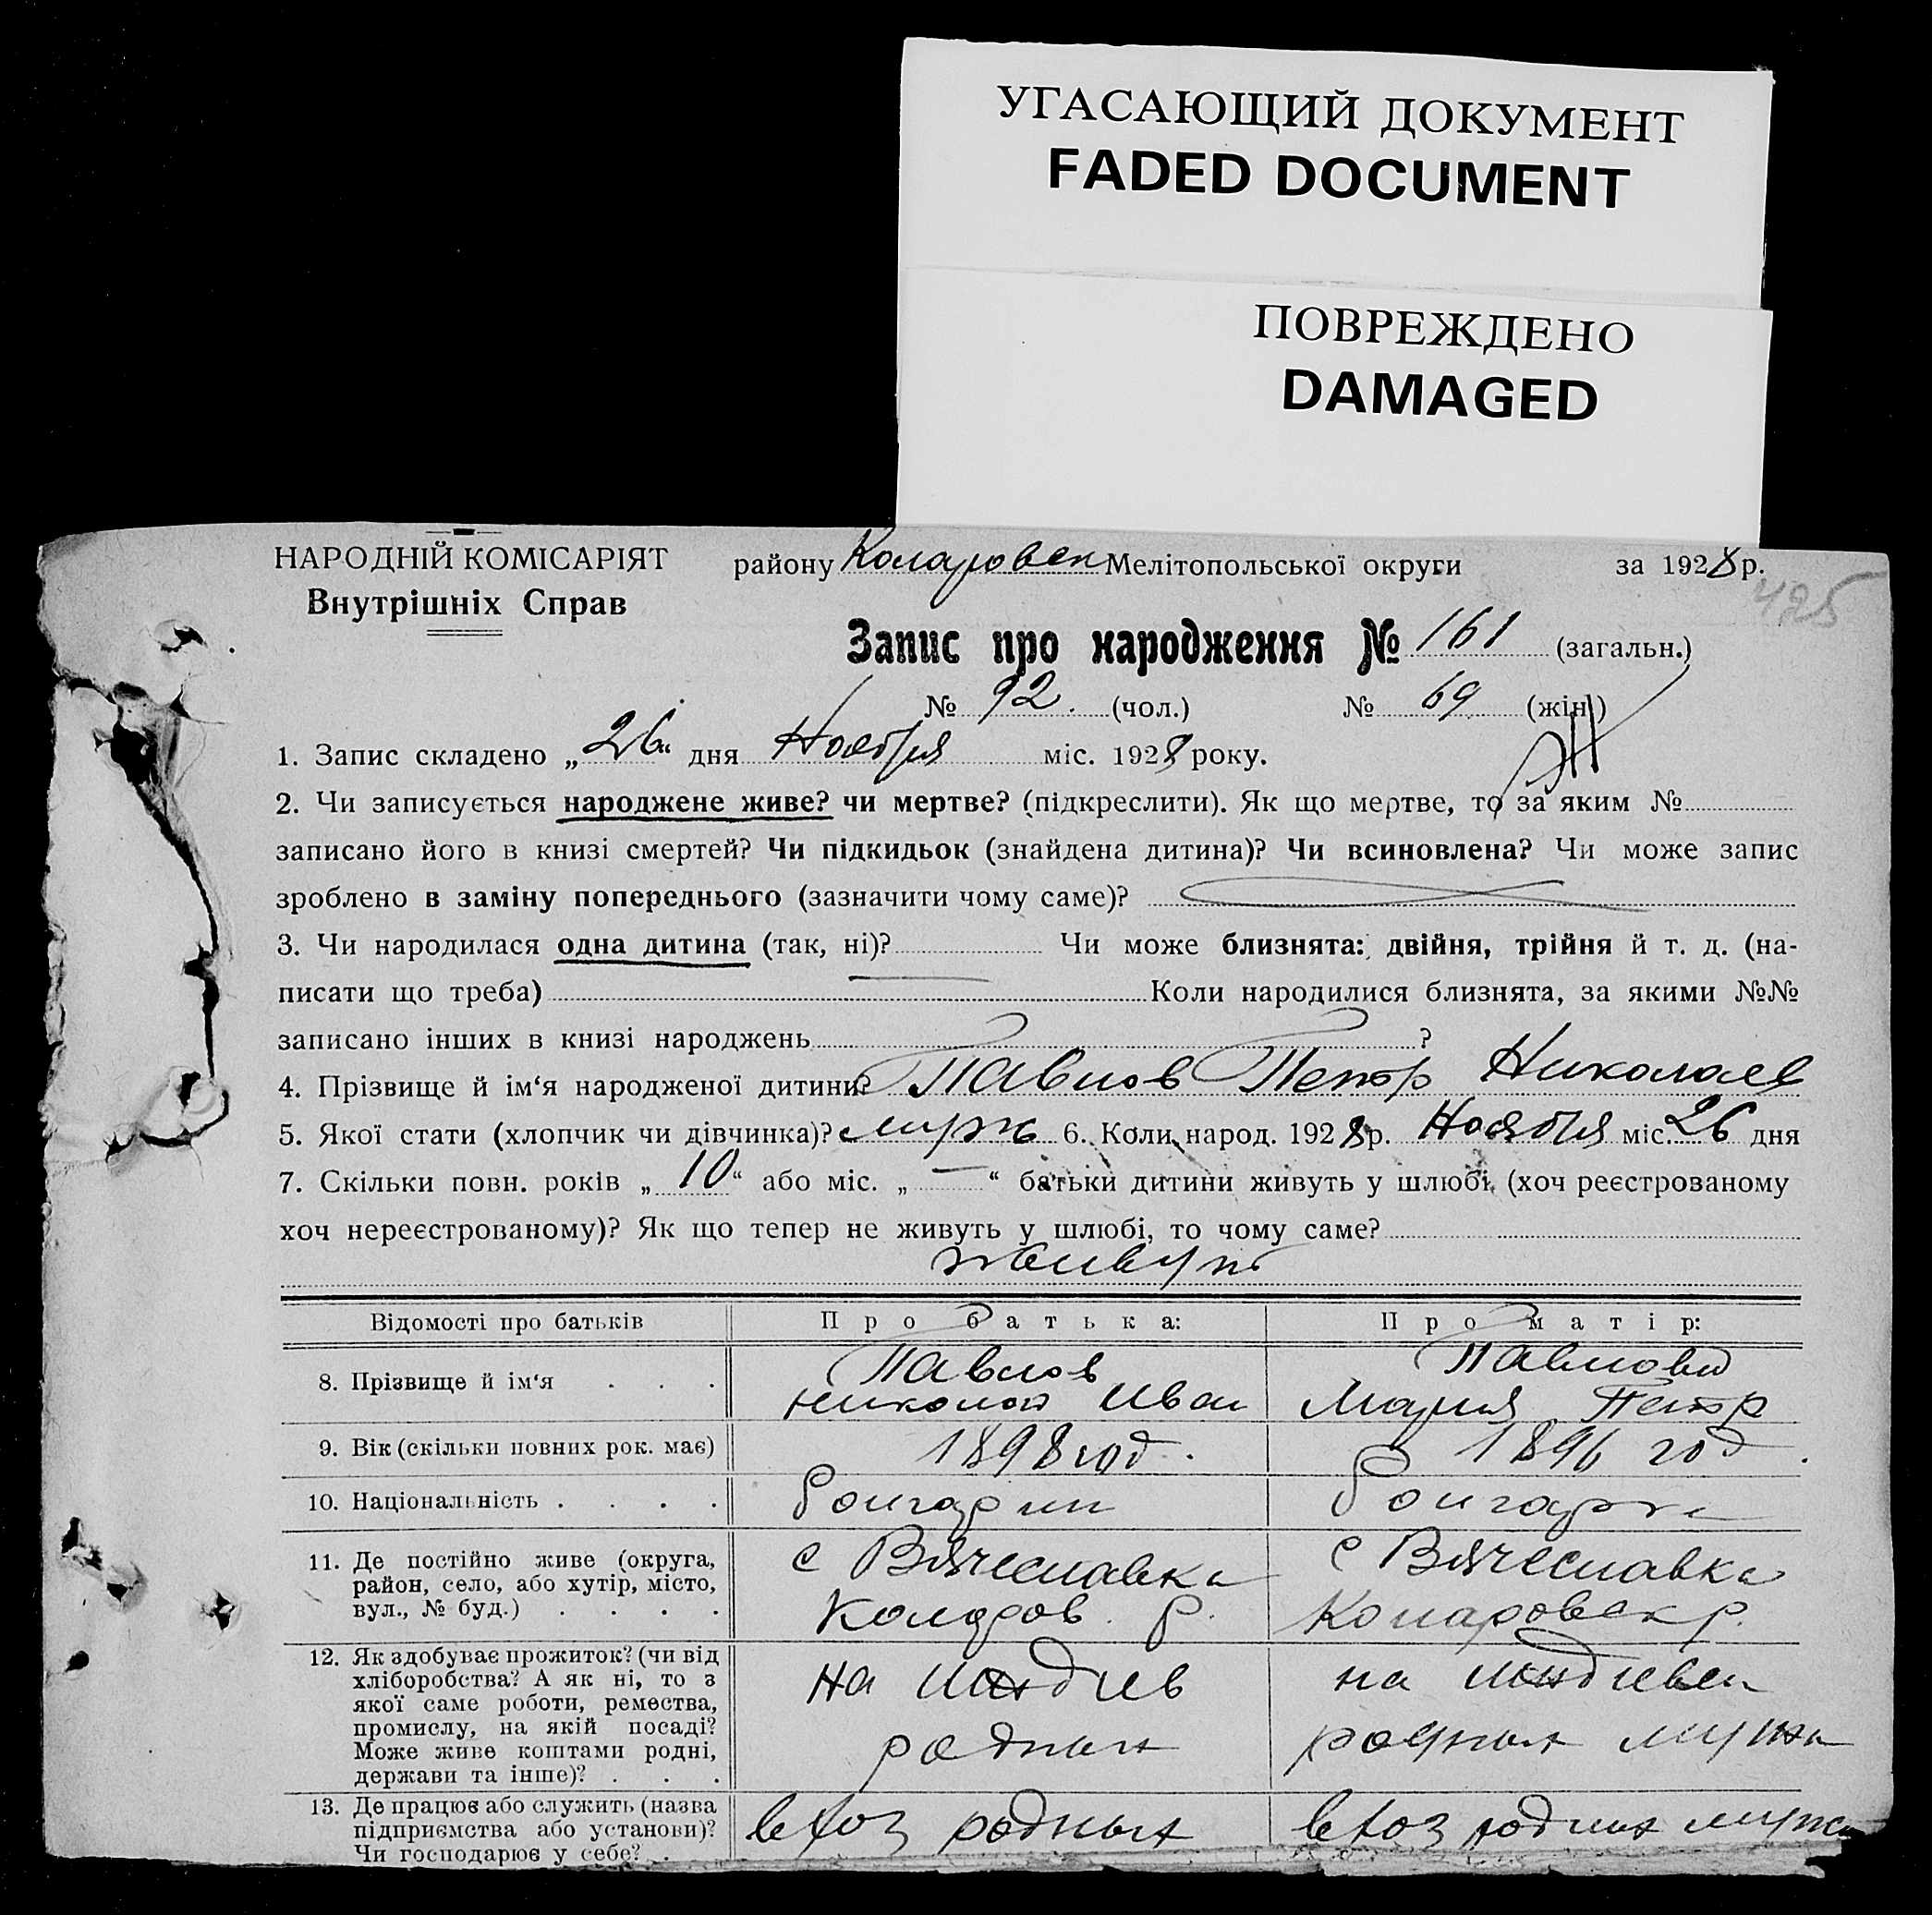 УГАСАЮЩИЙ ДОКУМЕНТ
FADED DOCUMENT
ПОВРЕЖДЕНО
DAMAGED
НАРОДНІЙ КОМІСАРІЯТ
Внутрішніх Справ
району Коларовск Мелітопольської округи за 1928 р.
425
Запис про народження № 161 (загальн.)
№ 92. (чол.) № 69 (жін.)
1. Запис складено „26“ дня Ноября міс. 1928 року.
2. Чи записується народжене живе? чи мертве? (підкреслити). Як що мертве, то за яким №
записано його в книзі смертей? Чи підкидьок (знайдена дитина)? Чи всиновлена? Чи може запис
зроблено в заміну попереднього (зазначити чому саме)?
3. Чи народилася одна дитина (так, ні)? Чи може близнята: двійня, трійня й т. д. (на-
писати що треба) — Коли народилися близнята, за якими №№
записано інших в книзі народжень ?
4. Прізвище й ім‘я народженої дитини? Павлов Петр Николаев
5. Якої стати (хлопчик чи дівчинка)? мужс 6. Коли народ. 1928 р. Ноября міс. 26 дня
7. Скільки повн. років „10“ або міс. „—“ батьки дитини живуть у шлюбі (хоч реєстрованому
хоч нереєстрованому)? Як що тепер не живуть у шлюбі, то чому саме?
живут
Відомості про батьків Про батька: Про матір:
8. Прізвище й ім‘я . . . Павлов Павлова
Николай Иван Мария Петр
9. Вік (скільки повних рок. має) 1898 год. 1896 год.
10. Національність . . . . болгарин болгарка
11. Де постійно живе (округа,
район, село, або хутір, місто,
вул., № буд.) . . . .
с Вячеславка с Вячеславка
Коларов. р. Коларовск р.
12. Як здобуває прожиток? (чи від
хліборобства? А як ні, то з
якої саме роботи, ремества,
промислу, на якій посаді?
Може живе коштами родні,
держави та інше)? . . .
на иждив на иждивен
родных родных мужа
13. Де працює або служить (назва
підприємства або установи)?
Чи господарює у себе? .
в хоз родных в хоз родных мужа